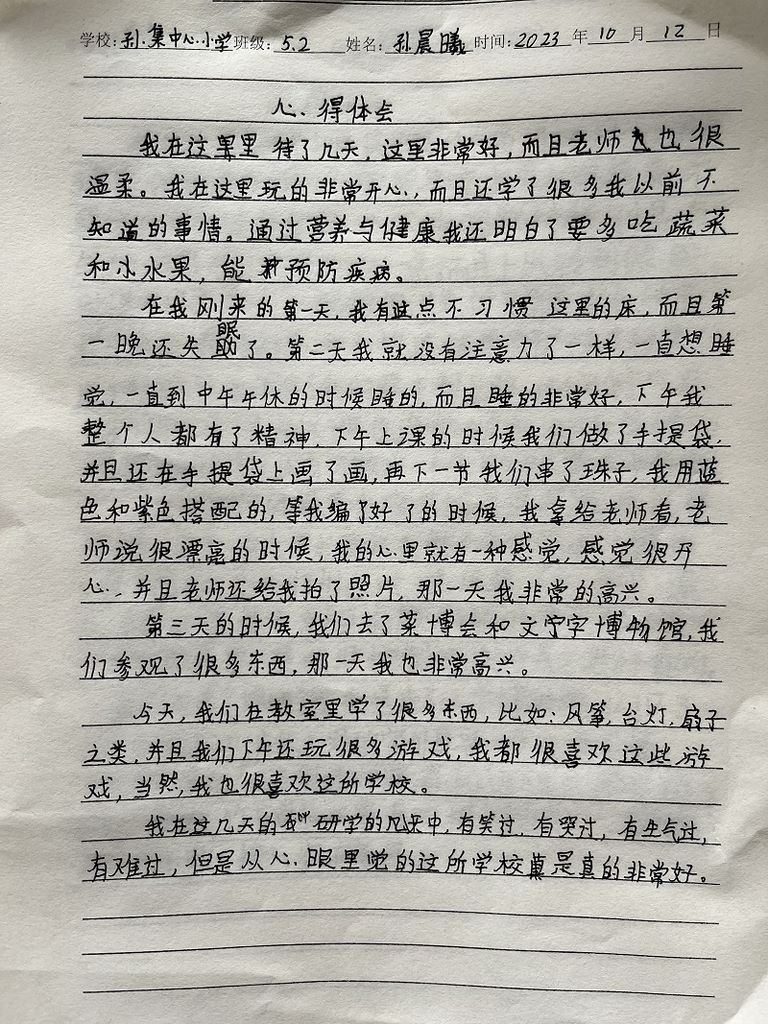 学校:孙集中心小学班级:5.2 姓名:孙晨曦时间:2023年10月12日
心得体会
我在这里待了几天,这里非常好,而且老师也很
温柔。我在这里玩的非常开心,而且还学了很多我以前不
知道的事情。通过营养与健康我还明白了要多吃蔬菜
和小水果,能预防疾病。
在我刚来的第一天,我有这点不习惯这里的床,而且第
一晚还失眠了。第二天我就没有注意力了一样,一直想睡
觉,一直到中午午休的时候睡的,而且睡的非常好,下午我
整个人都有了精神,下午上课的时候我们做了手提袋,
并且还在手提袋上画了画,再下一节我们串了珠子,我用蓝
色和紫色搭配的,等我编好了的时候,我拿给老师看,老
师说很漂亮的时候,我的心里就有一种感觉,感觉很开
心,并且老师还给我拍了照片,那一天我非常的高兴。
第三天的时候,我们去了菜博会和文字博物馆,我
们参观了很多东西,那一天我也非常高兴。
今天,我们在教室里学了很多东西,比如:风筝,台灯,扇子
之类,并且我们下午还玩很多游戏,我都很喜欢这些游
戏,当然,我也很喜欢这所学校。
我在这几天的研学的中,有笑过,有哭过,有生气过,
有难过,但是从心眼里觉的这所学校真是真的非常好。